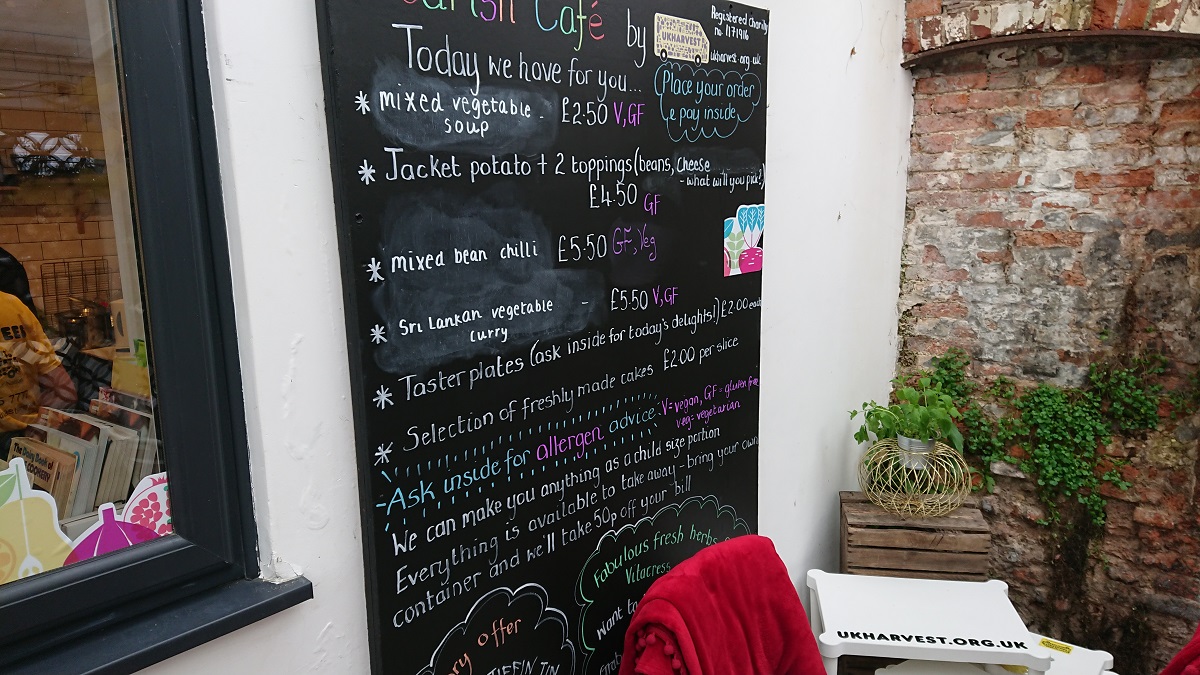 Café by
UKHARVEST
Registered charity
no. 1171916
ukharvest.org.uk
Today we have for you...
Place your order
& pay inside
* mixed vegetable - £2.50 V, GF
soup
* Jacket potato + 2 toppings (beans, cheese
- what will you pick?)
£4.50 GF
* mixed bean chilli £5.50 GF, Veg
* Sri Lankan vegetable - £5.50 V, GF
curry
* Taster plates (ask inside for today's delights!) £2.00 each
* Selection of freshly made cakes £2.00 per slice
Ask inside for allergen advice
V = vegan, GF = gluten free
Veg = vegetarian
We can make you anything as a child size portion
Everything is available to take away - bring your own
container and we'll take 50p off your bill
Fabulous fresh herbs
Vitacress
Want
offer
TIFFIN TIN
UKHARVEST.ORG.UK
COOKERY